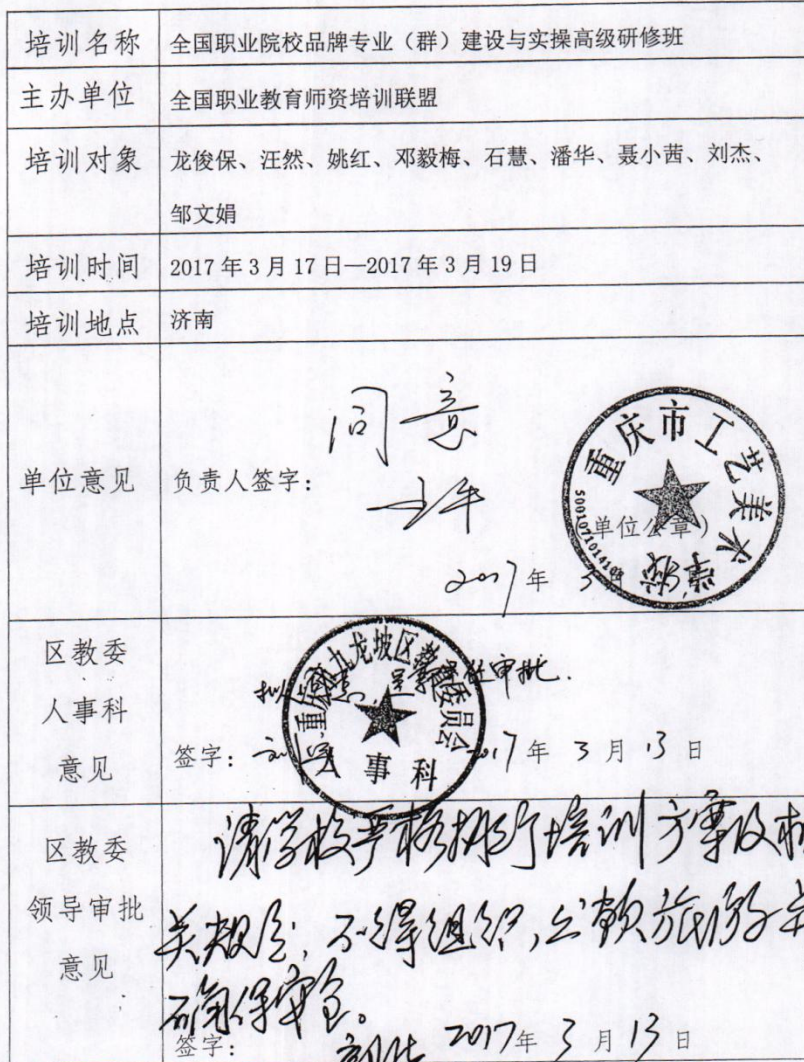 培训名称 全国职业院校品牌专业（群）建设与实操高级研修班
主办单位 全国职业教育师资培训联盟
培训对象 龙俊保、汪然、姚红、邓毅梅、石慧、潘华、聂小茜、刘杰、
邹文娟
培训时间 2017年3月17日—2017年3月19日
培训地点 济南
同意
单位意见 负责人签字：
重庆市工艺美术学校
（单位公章）
2017年 3
区教委
人事科
意见
重庆市九龙坡区教育委员会
人事科
审批.
签字： 2017年3月13日
区教委
领导审批
意见
请学校严格执行培训方案及相
关规定，不得组织公款旅游，
确保安全。
签字： 2017年3月13日